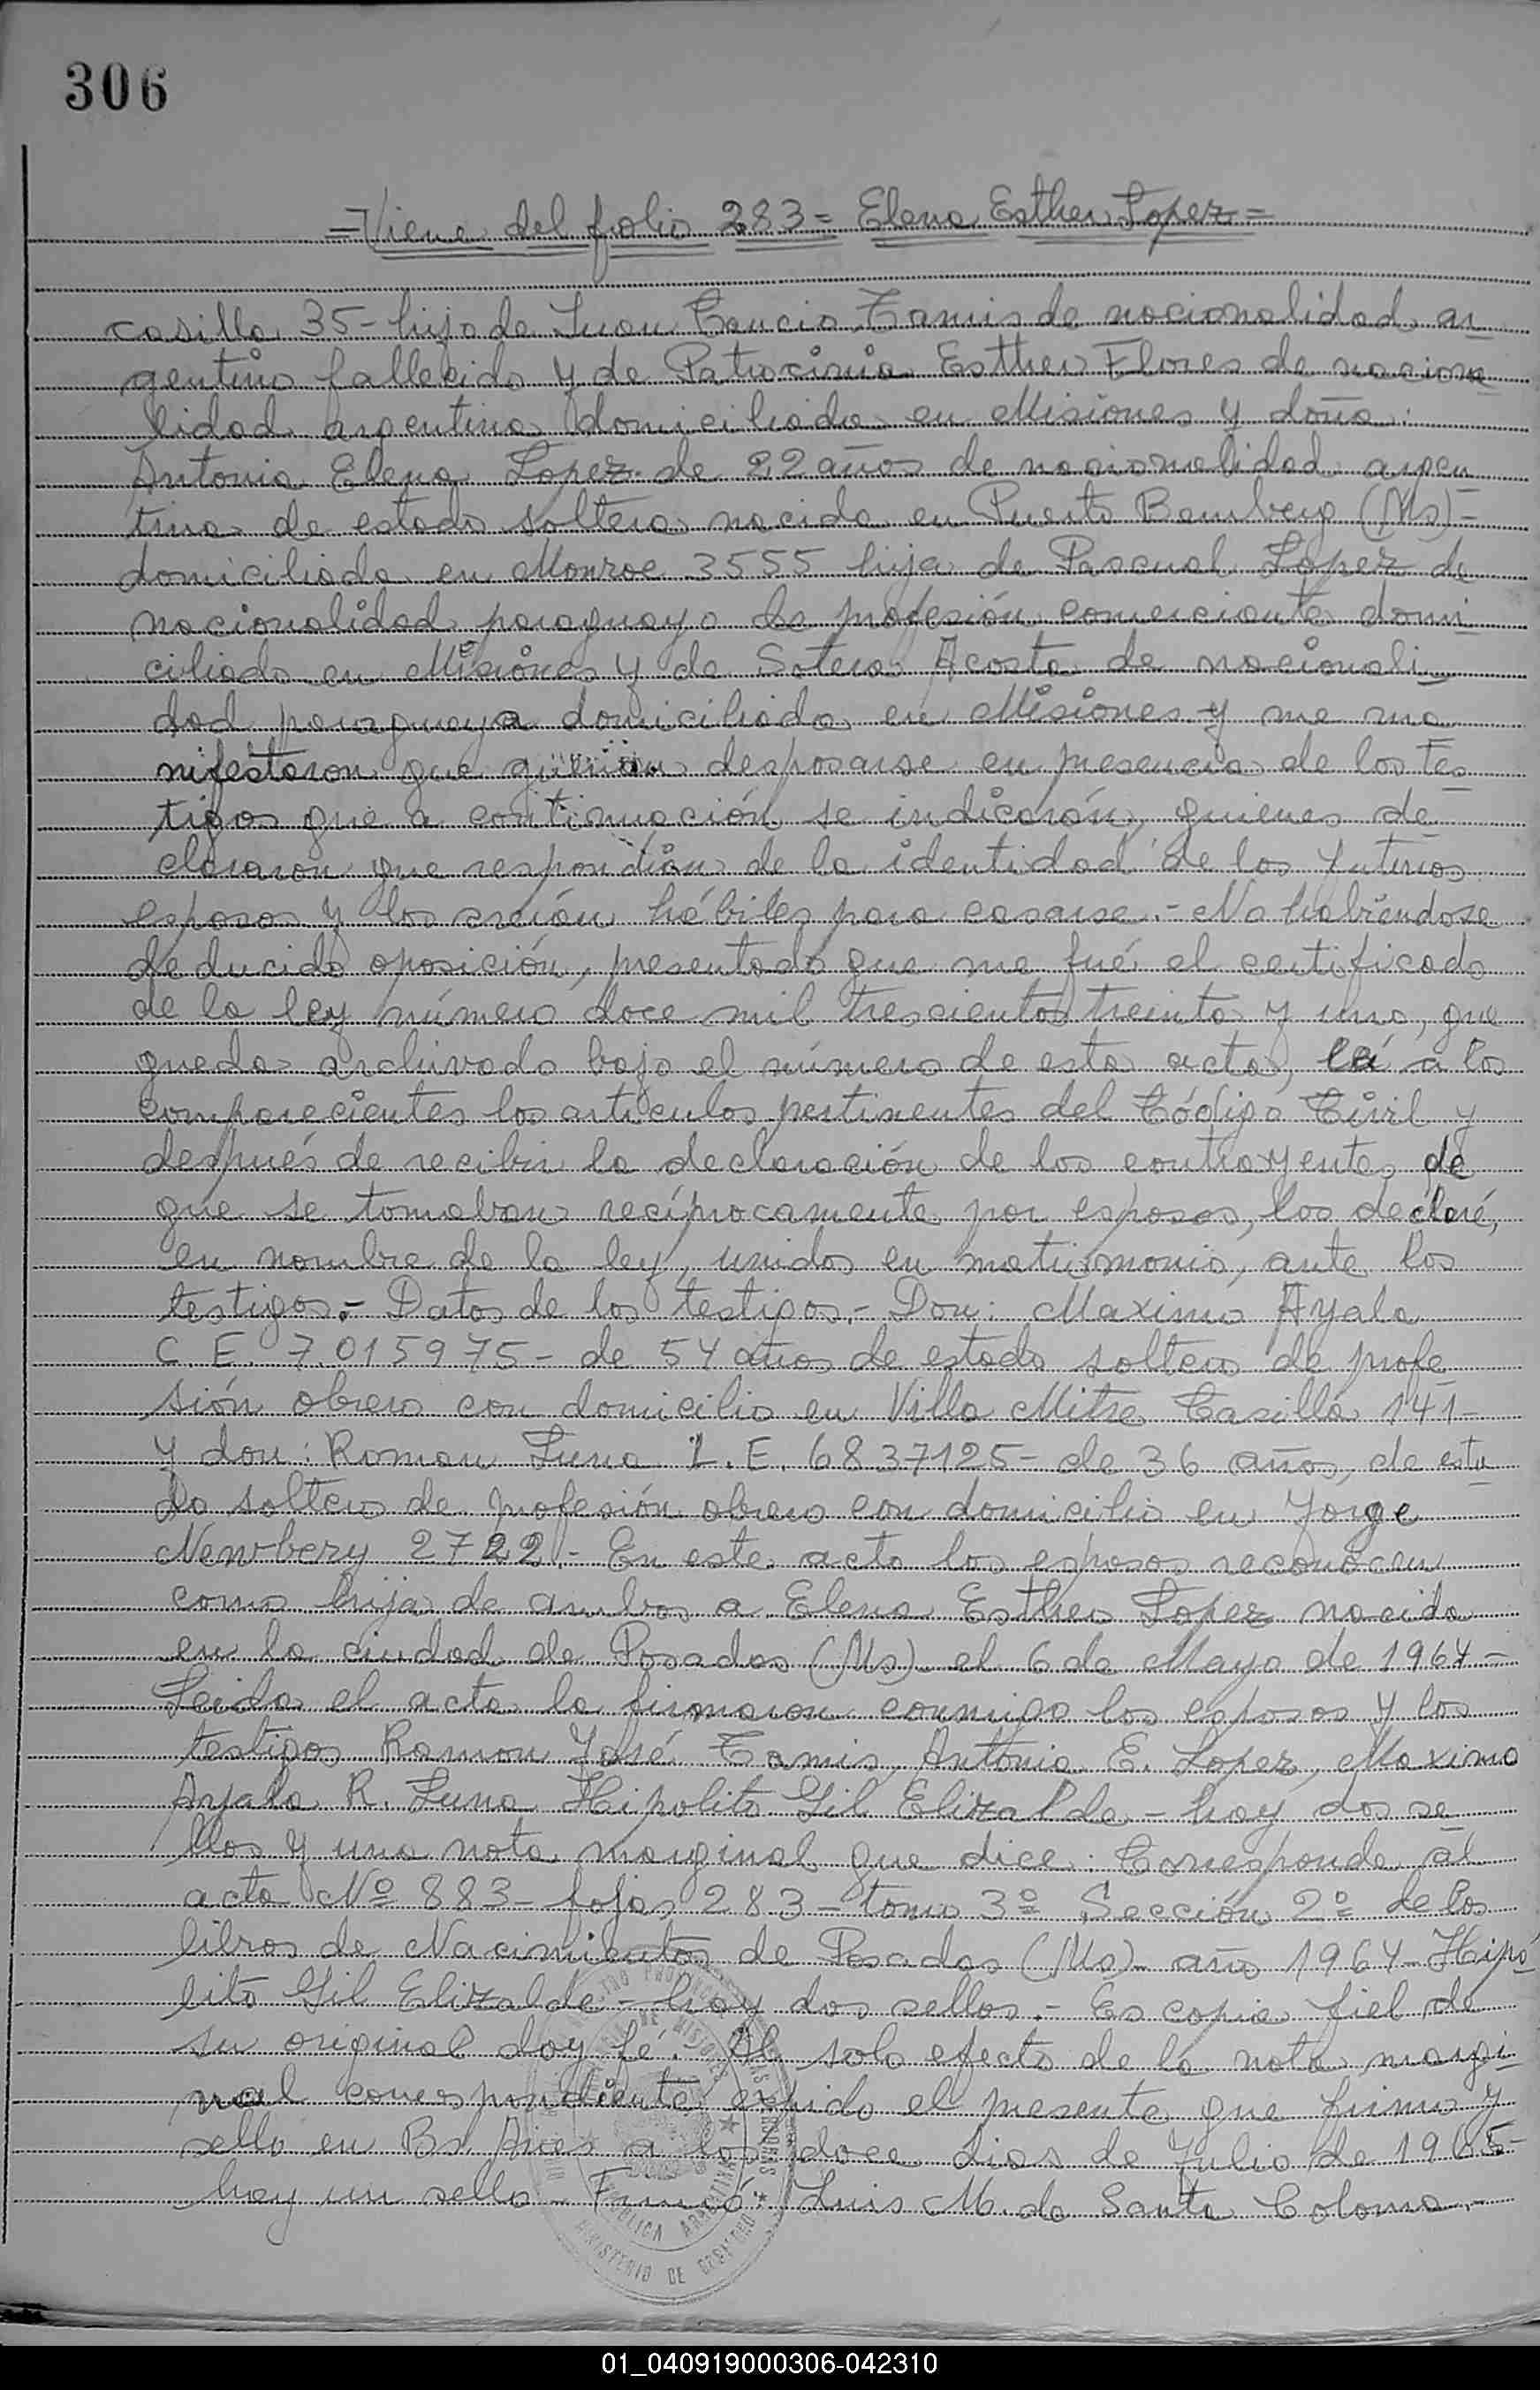 306
=Viene del folio 283= Elena Esther Lopez=
casilla 35- hijo de Juan Cancio Tamis de nacionalidad ar
gentino fallecido y de Patrocinia Esther Flores de naciona
lidad argentina domiciliada en Misiones y doña:
Antonia Elena Lopez de 22 años de nacionalidad argen
tina de estado soltera nacida en Puerto Bemberg (Ms)-
domiciliada en Monroe 3555 hija de Pascual Lopez de
nacionalidad paraguayo de profesión comerciante domi
ciliado en Misiones y de Sotera Acosta de nacionali
dad paraguaya domiciliada en Misiones y me ma
nifestaron que querían desposarse en presencia de los Tes
tigos que a continuación se indicarán, quienes de
claran que respondían de la identidad de los futuros
esposos y los creían hábiles para casarse.- No habiendose
deducido oposición, presentado que me fué el certificado
de la ley número doce mil trescientos treinta y uno, que
queda archivado bajo el número de esta acta, leí a los
comparecientes los artículos pertinentes del Código Civil y
después de recibir la declaración de los contrayentes de
que se tomaban recíprocamente por esposos, los declaré,
en nombre de la ley, unidos en matrimonio, ante los
testigos.- Datos de los testigos.- Don: Maximo Ayala
C. E. 7.015975- de 54 años de estado soltero de profe
sión obrero con domicilio en Villa Mitre Casilla 141-
y don: Roman Luna L.E. 6837125- de 36 años, de esta
do soltero de profesión obrero con domicilio en Jorge
Newbery 2722.- En este acto los esposos reconocen
como hija de ambos a Elena Esther Lopez nacida
en la ciudad de Posadas (Ms) el 6 de Mayo de 1964-
Leida el acta la firmaron conmigo los esposos y los
testigos Ramon José Tamis, Antonia E. Lopez, Maximo
Ayala R. Luna Hipolito Gil Elizalde - hay dos se
llos y una nota marginal que dice: Corresponde al
acta Nº 883- fojas 283- tomo 3º Sección 2º de los
libros de Nacimientos de Posadas (Ms) año 1964- Hipó
lito Gil Elizalde - hay dos sellos.- Es copia fiel de
su original doy fé. Al solo efecto de la nota margi
nal correspondiente expido el presente que firmo y
sello en Bs. Aires a los doce dias de Julio de 1965-
hay un sello - Firmó: Luis M. de Santa Coloma.-
REPUBLICA ARGENTINA
MINISTERIO DE GOBIERNO
01_040919000306-042310